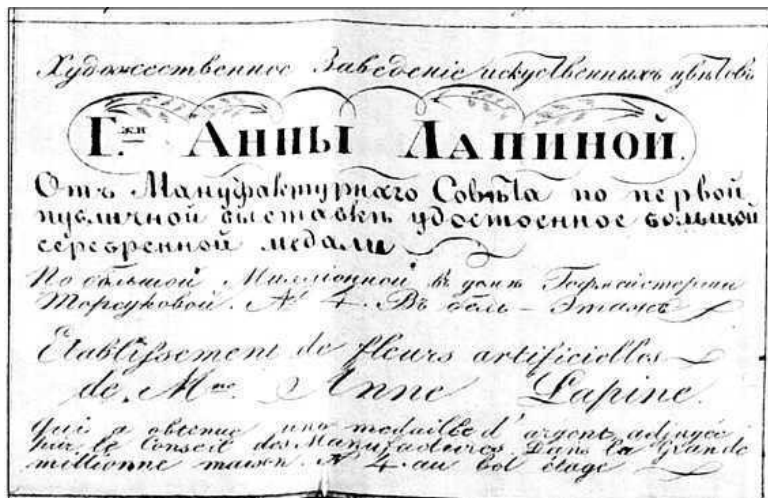 Художественное Заведеніе искуственныхъ цвѣтовъ
Г.жи АННЫ ЛАПИНОЙ.
Отъ Мануфактурнаго Совѣта по первой
публичной выставкѣ удостоенное большой
серебренной медали
По большой Милліонной въ домѣ Гофмейстерши
Торсуковой. № 4. Въ бель-Этажѣ
Etablissement de fleurs artificielles
de Mme Anne Lapine.
qui a obtenue une medaille d'argent adjugée
par le Conseil des Manufactures. Dans la Grande
millionne maison № 4. au bel étage